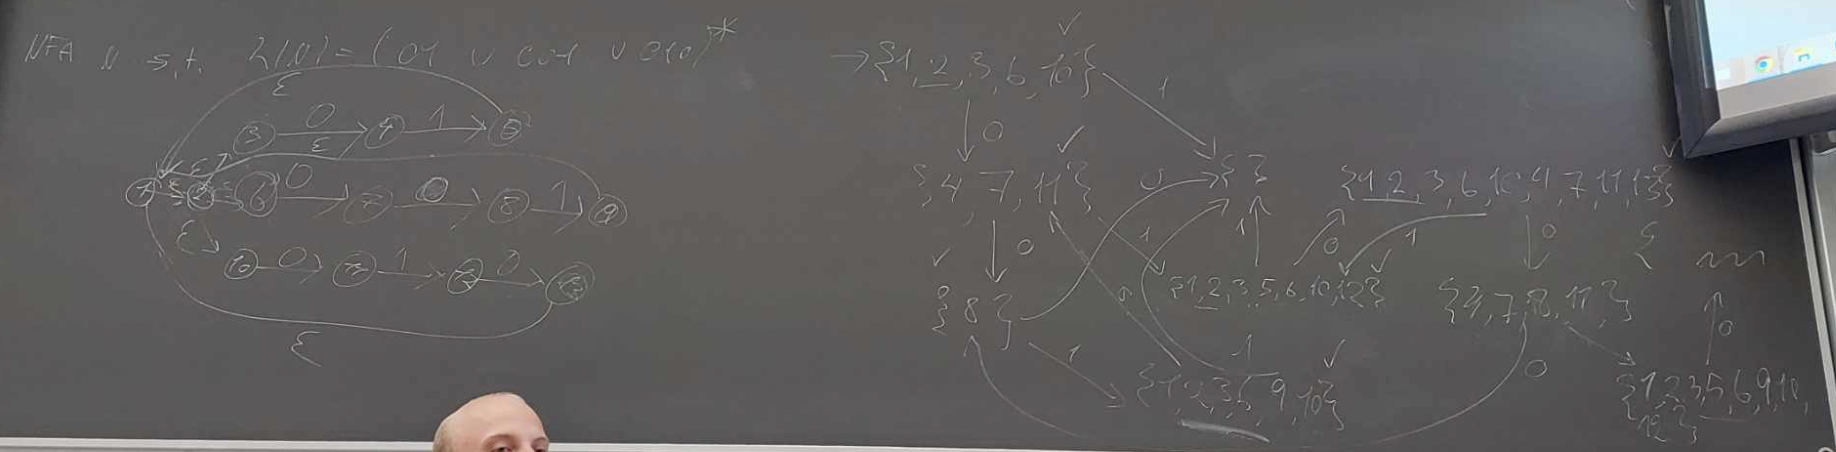 NFA N s.t. L(N) = (01 ∪ 001 ∪ 010)*
ε
3 0 4 1 5
ε
1 ε 2 ε 6 0 7 0 8 1 9
ε
10 0 11 1 12 0 13
ε
→{1,2,3,6,10}
0 1
{4,7,11}
{ }
{1,2,3,6,10,4,7,11,13}
0 0 1 1 0 1 0
{8}
{1,2,3,5,6,10,12}
{4,7,8,11}
{
1 0 1 0 0
{1,2,3,6,9,10}
{1,2,3,5,6,9,10,
12}